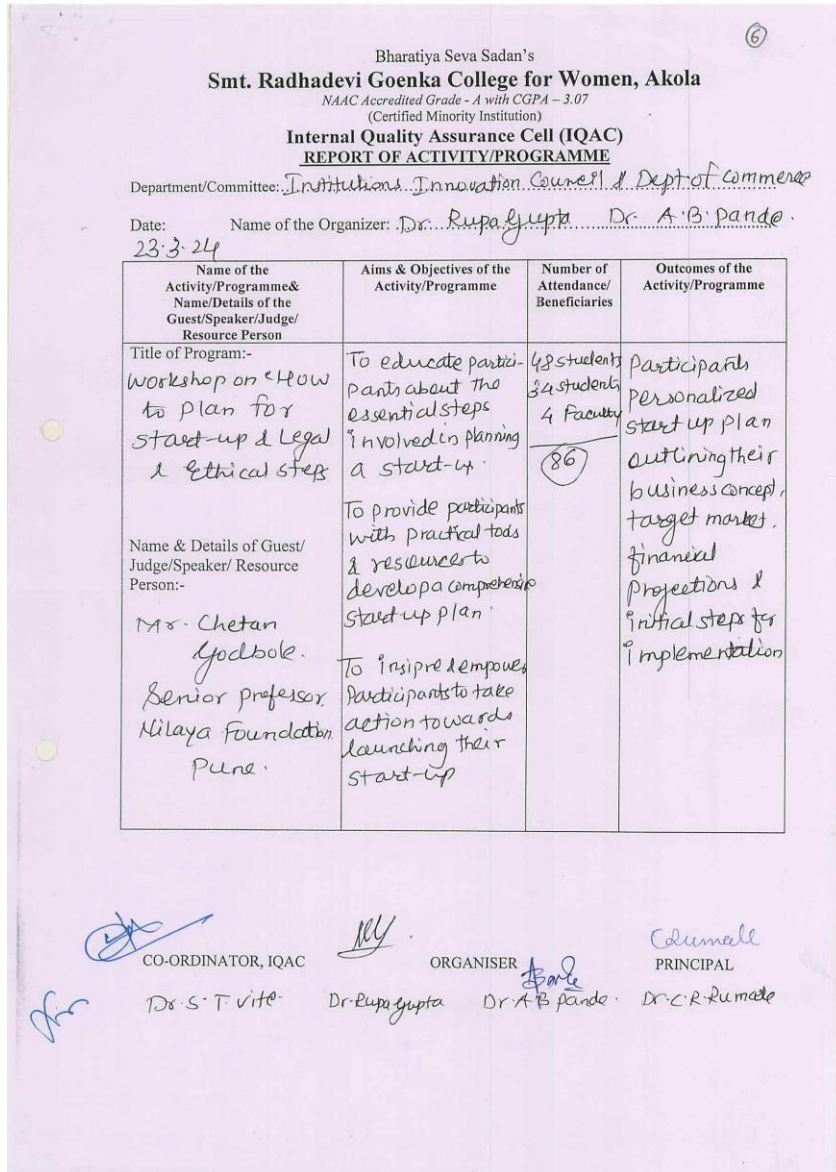 6
Bharatiya Seva Sadan's
Smt. Radhadevi Goenka College for Women, Akola
NAAC Accredited Grade - A with CGPA – 3.07
(Certified Minority Institution)
Internal Quality Assurance Cell (IQAC)
REPORT OF ACTIVITY/PROGRAMME
Department/Committee: Institutions Innovation Council & Dept of Commerce
Date: Name of the Organizer: Dr. Rupa Gupta Dr. A.B. Pande.
23.3.24
Name of the
Activity/Programme&
Name/Details of the
Guest/Speaker/Judge/
Resource Person
Aims & Objectives of the
Activity/Programme
Number of
Attendance/
Beneficiaries
Outcomes of the
Activity/Programme
Title of Program:-
Workshop on "How
to Plan for
Start-up & Legal
& Ethical steps
Name & Details of Guest/
Judge/Speaker/ Resource
Person:-
Mr. Chetan
Godbole.
Senior professor
Nilaya Foundation
Pune.
To educate partici-
pants about the
essential steps
involved in planning
a start-up.
To provide participants
with practical tools
& resources to
develop a comprehensive
start up plan.
To insipre & empower
Participants to take
action towards
launching their
start-up
48 students
34 students
4 Faculty
86
Participants
personalized
start up plan
outlining their
business concept,
target market,
financial
projections &
initial steps for
implementation
CO-ORDINATOR, IQAC ORGANISER PRINCIPAL
Dr. S. T. Vite. Dr. Rupa Gupta Dr. A B Pande. Dr. C. R. Rumale